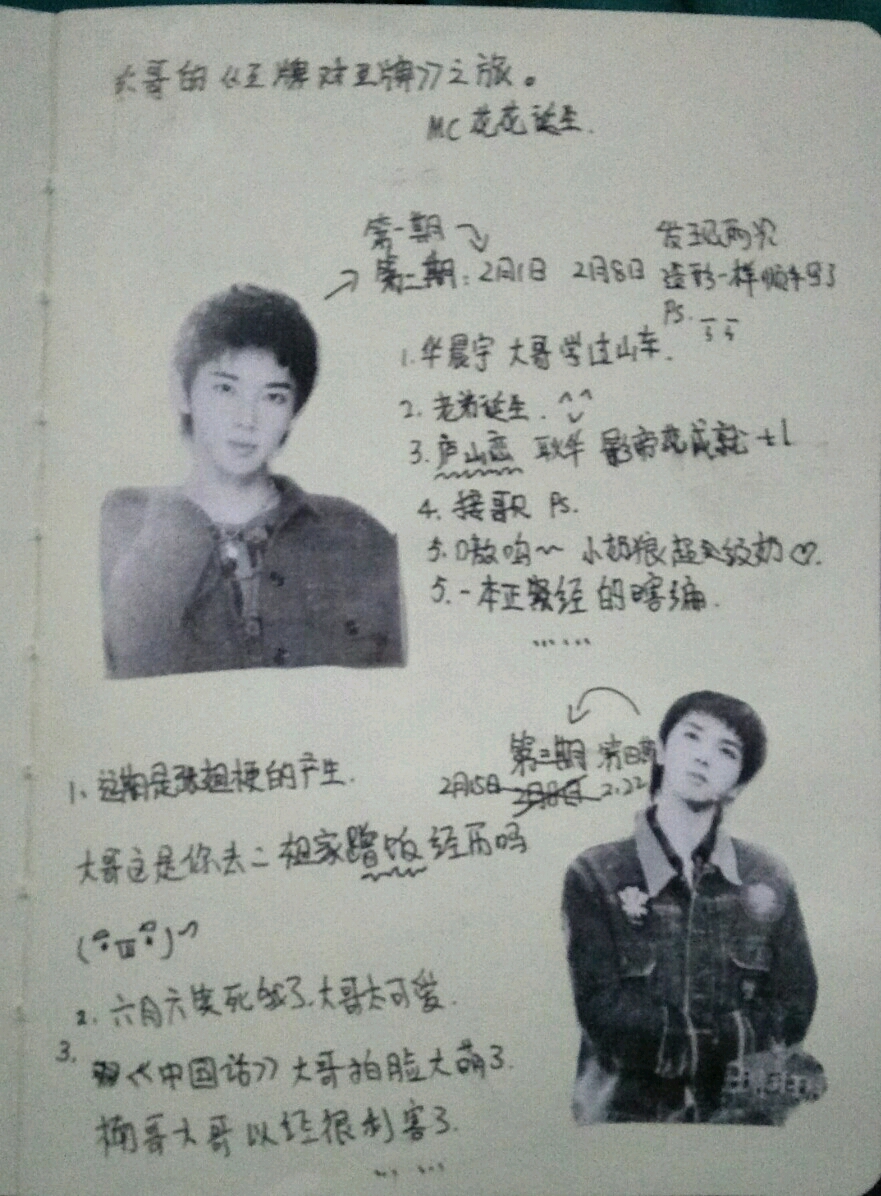 大哥的《王牌对王牌》之旅。
MC花花诞生.
第一期
第二期：2月1日 2月8日
发现两次
造型一样
Ps.
1.华晨宇 大哥学过山车.
2.老弟诞生.^^
3.庐山恋 耿华 影帝花成就+1
4.接歌 Ps.
5.嗷呜~~ 小奶狼超级奶♡.
5.一本正经的瞎编.
……
第三期
2月15日 2.22
1.这期是张姐梗的产生.
大哥这是你去二姐家蹭饭经历吗
2.六月六笑死我了.大哥太可爱.
3.《中国话》大哥拍脸太萌了.
楠哥大哥以经很利害了.
……